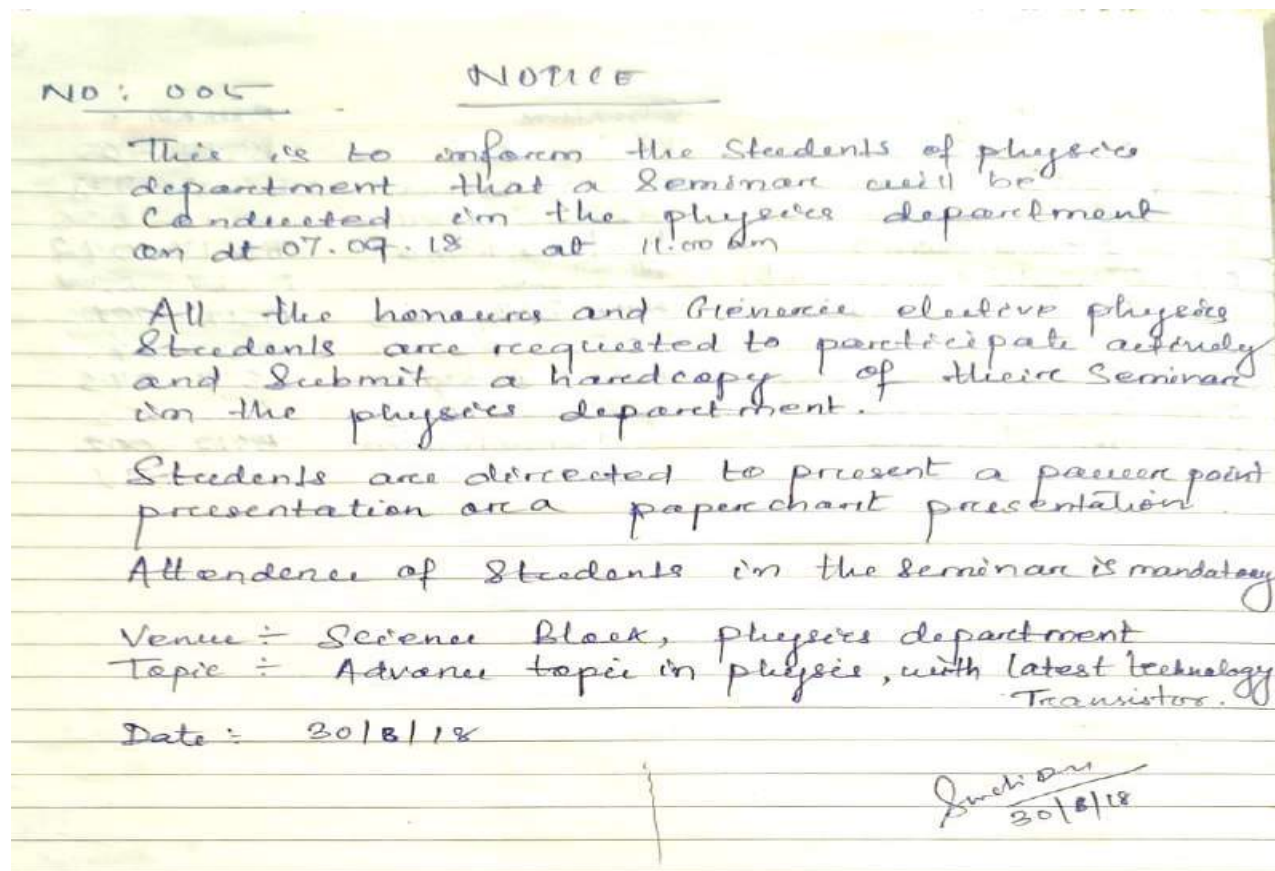 NOTICE
NO: 005
This is to inform the Students of physics
department that a Seminar will be
Conducted in the physics department
on dt 07.09.18 at 11.00 Am
All the honours and Generic elective physics
Students are requested to participate actively
and Submit a hardcopy of their Seminar
in the physics department.
Students are directed to present a power point
presentation or a paper chart presentation.
Attendence of Students in the Seminar is mandatory
Venue :- Science Block, physics department
Topic :- Advance topic in physic, with latest technology
Transistor.
Date :- 30/8/18
30/8/18